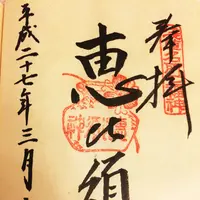 奉拝
恵比須
平成二十七年三月